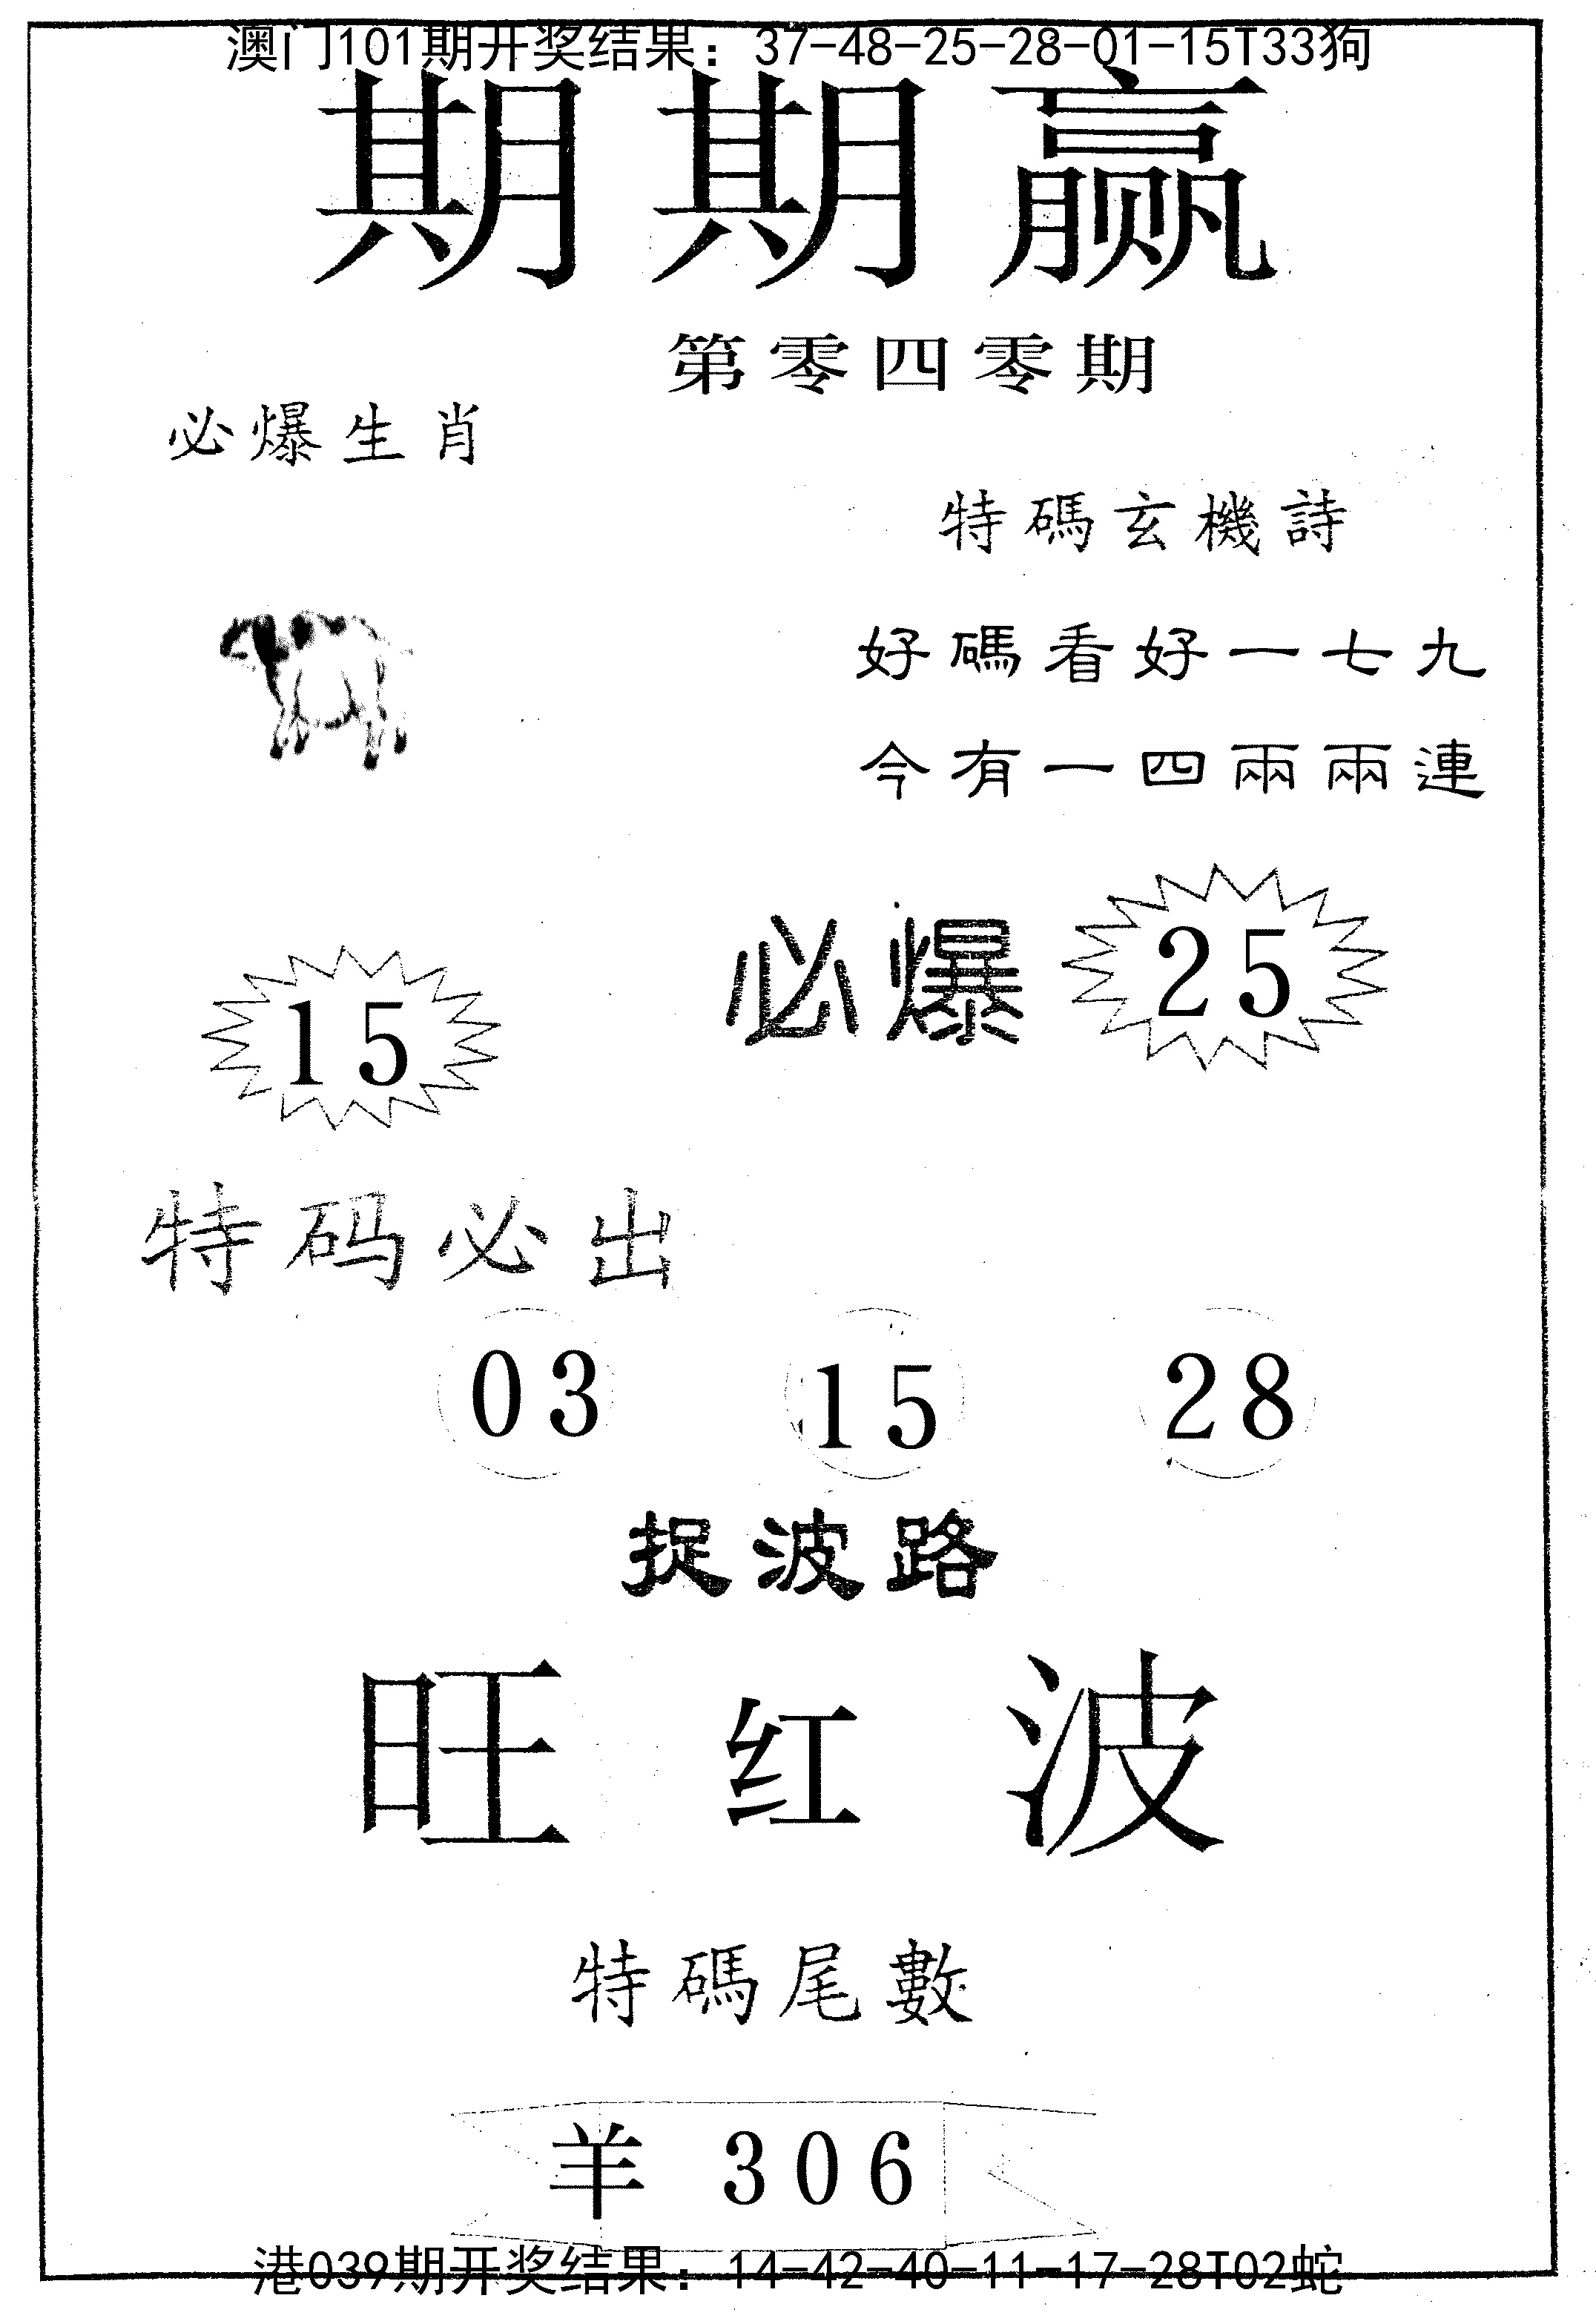 澳门101期开奖结果：37-48-25-28-01-15T33狗
期期赢
第零四零期
必爆生肖
特碼玄機詩
好碼看好一七九
今有一四兩兩連
必爆 25
15
特码必出
03 15 28
捉波路
旺红波
特碼尾數
羊 306
港039期开奖结果：14-42-40-11-17-28T02蛇